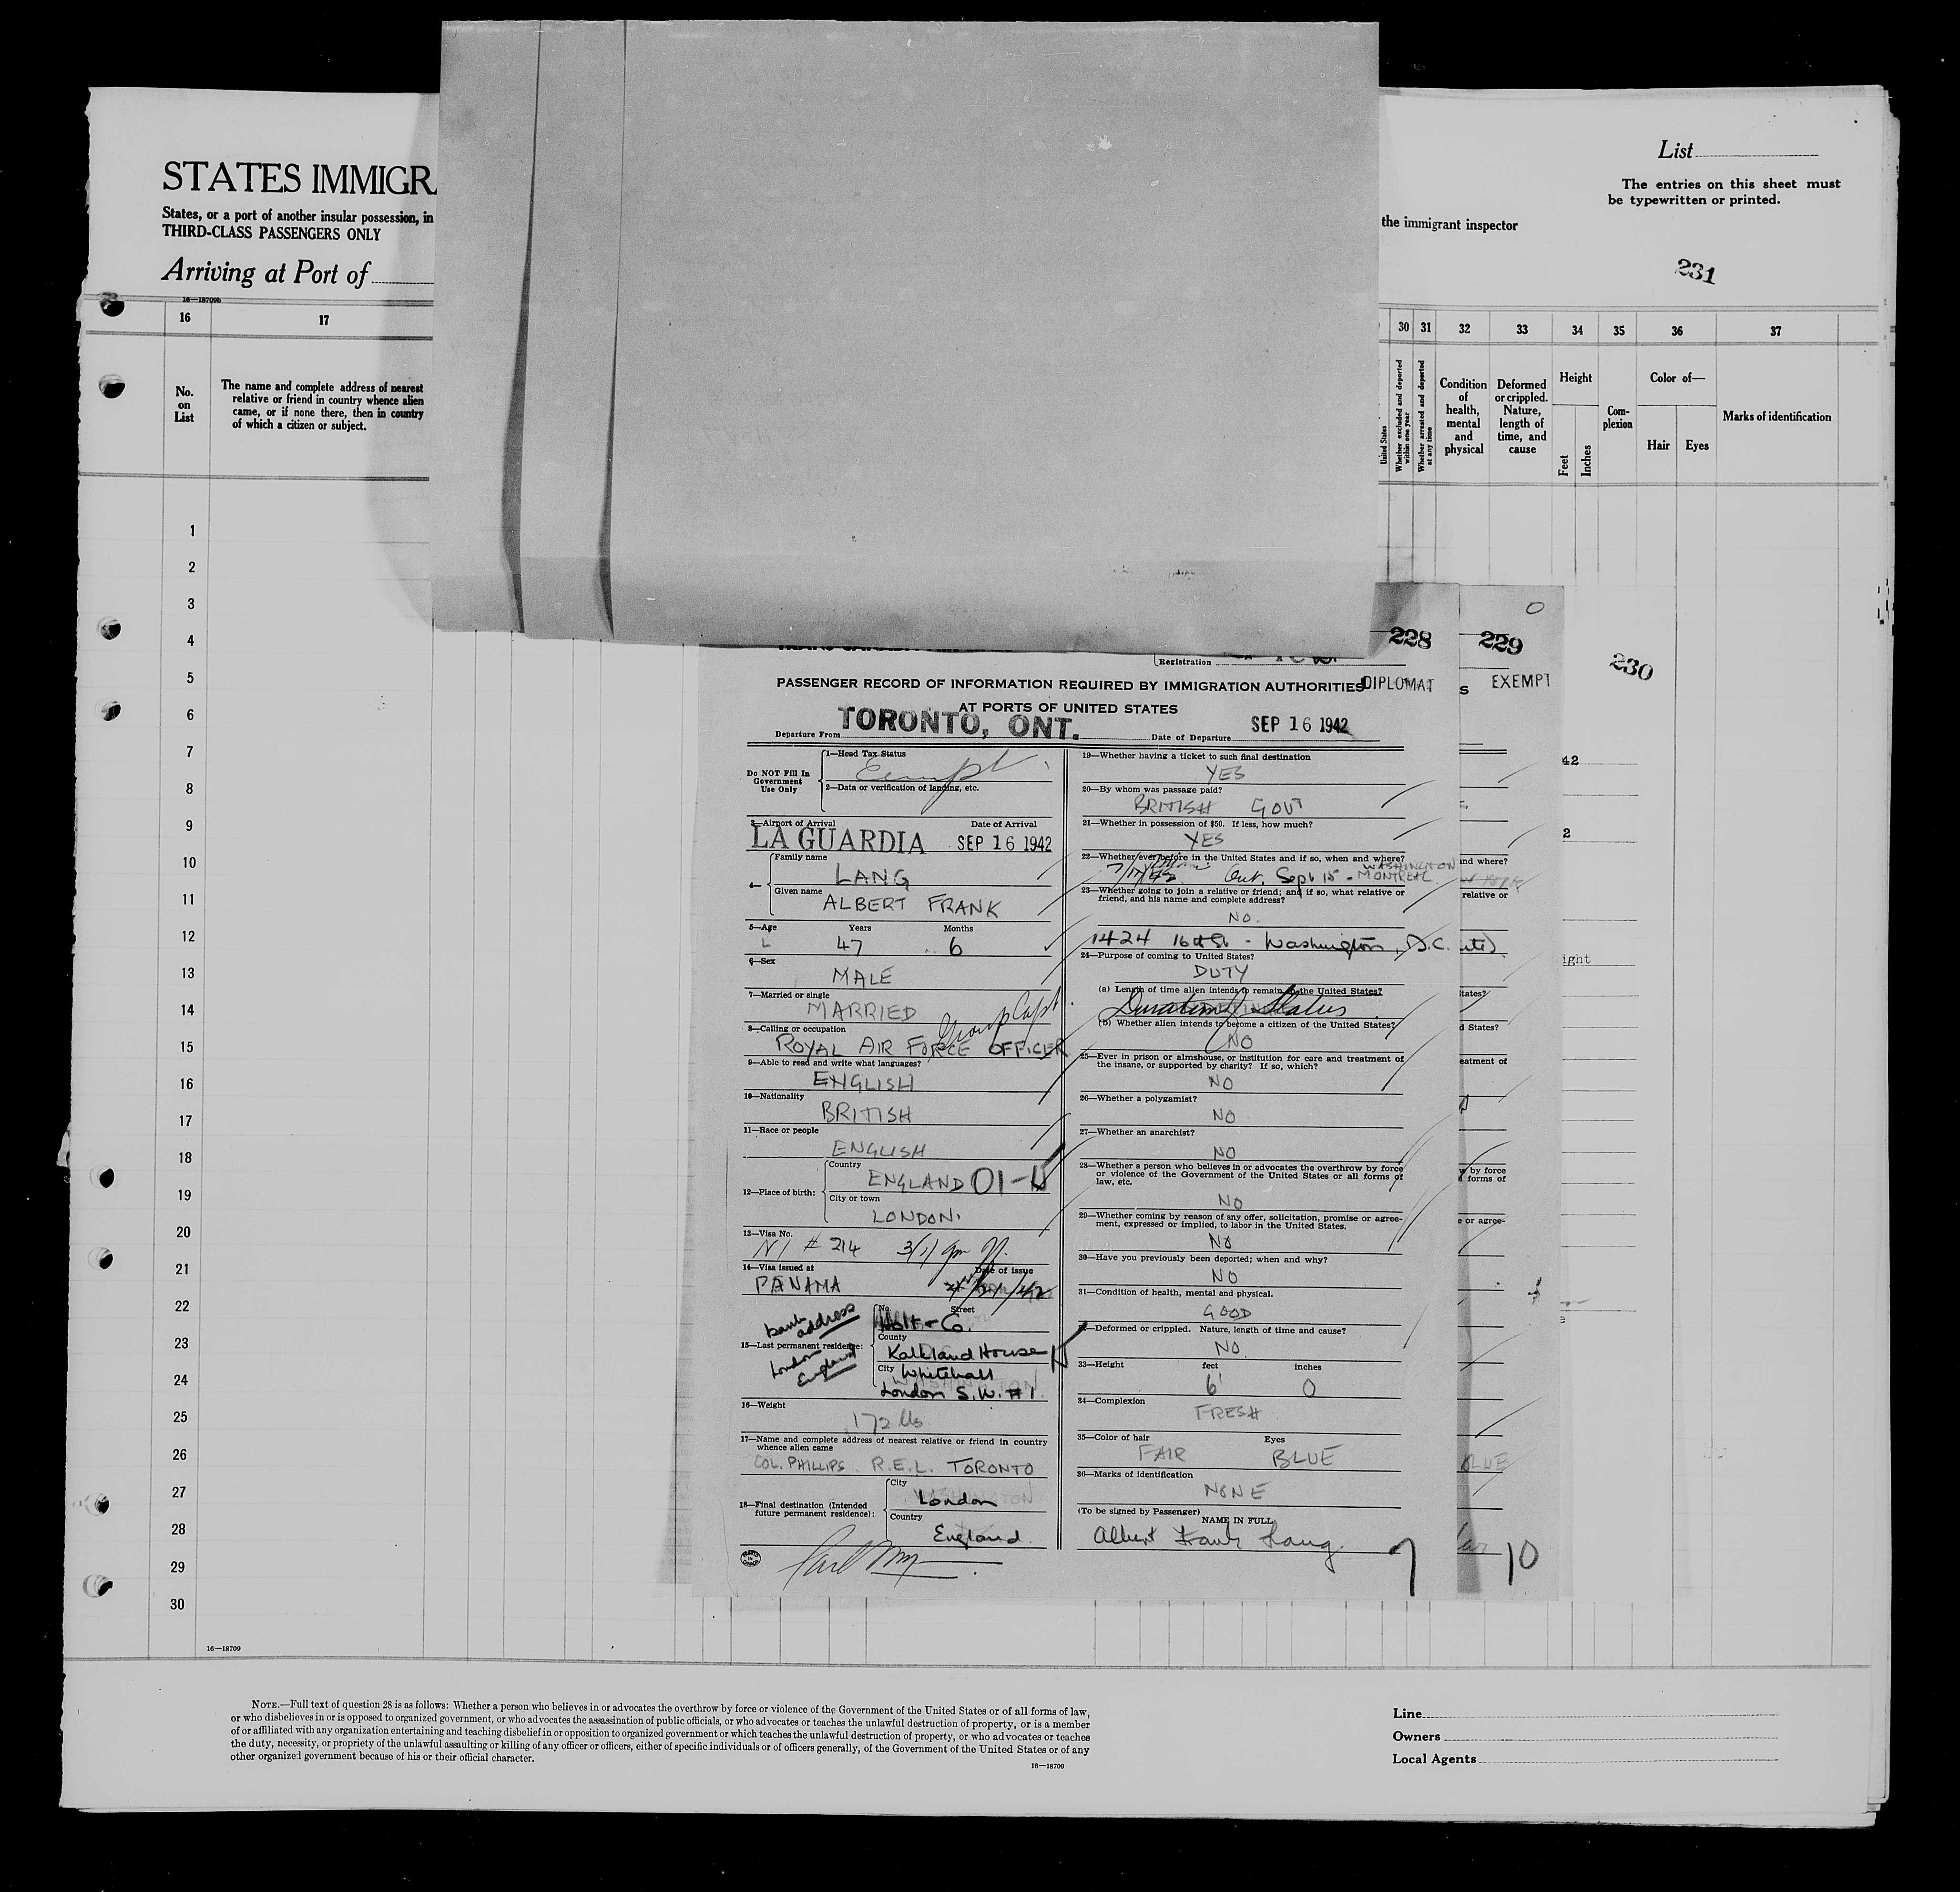 STATES IMMIGRA
States, or a port of another insular possession, in
THIRD-CLASS PASSENGERS ONLY
Arriving at Port of
the immigrant inspector
List
The entries on this sheet must
be typewritten or printed.
231
16—18709b
16 17 30 31 32 33 34 35 36 37
No.
on
List
The name and complete address of nearest
relative or friend in country whence alien
came, or if none there, then in country
of which a citizen or subject.
United States
Whether excluded and deported
within one year
Whether arrested and deported
at any time
Condition
of
health,
mental
and
physical
Deformed
or crippled.
Nature,
length of
time, and
cause
Height
Feet
Inches
Com-
plexion
Color of—
Hair
Eyes
Marks of identification
1
2
3
4
5
6
7
8
9
10
11
12
13
14
15
16
17
18
19
20
21
22
23
24
25
26
27
28
29
30
16—18709
228
229
230
Registration
PASSENGER RECORD OF INFORMATION REQUIRED BY IMMIGRATION AUTHORITIES
DIPLOMAT
S EXEMPT
AT PORTS OF UNITED STATES
Departure From TORONTO, ONT. Date of Departure SEP 16 1942
Do NOT Fill In
Government
Use Only
1—Head Tax Status
Exempt
2—Data or verification of landing, etc.
3—Airport of Arrival Date of Arrival
LA GUARDIA SEP 16 1942
4—
Family name
LANG
Given name
ALBERT FRANK
5—Age Years Months
47 6
6—Sex
MALE
7—Married or single
MARRIED
8—Calling or occupation
Group Capt
ROYAL AIR FORCE OFFICER
9—Able to read and write what languages?
ENGLISH
10—Nationality
BRITISH
11—Race or people
ENGLISH
12—Place of birth:
Country
ENGLAND
City or town
LONDON.
13—Visa No.
# 214
14—Visa issued at Date of issue
PANAMA
bank
address
London
England
15—Last permanent residence:
No. Street
Holt & Co.
County
Kalkland House
City Whitehall
London S.W. #1.
16—Weight
172 lbs
17—Name and complete address of nearest relative or friend in country
whence alien came
COL. PHILLIPS. R.E.L. TORONTO
18—Final destination (Intended
future permanent residence):
City
London
Country
England.
19—Whether having a ticket to such final destination
YES
20—By whom was passage paid?
BRITISH GOVT
21—Whether in possession of $50. If less, how much?
YES
22—Whether ever before in the United States and if so, when and where?
WASHINGTON
Out. Sept 15 - MONTREAL
23—Whether going to join a relative or friend; and if so, what relative or
friend, and his name and complete address?
NO.
1424 16th St - Washington, D.C.
24—Purpose of coming to United States?
DUTY
(a) Length of time alien intends to remain in the United States?
Duration of Status
(b) Whether alien intends to become a citizen of the United States?
NO
25—Ever in prison or almshouse, or institution for care and treatment of
the insane, or supported by charity? If so, which?
NO
26—Whether a polygamist?
NO
27—Whether an anarchist?
NO
28—Whether a person who believes in or advocates the overthrow by force
or violence of the Government of the United States or all forms of
law, etc.
NO
29—Whether coming by reason of any offer, solicitation, promise or agree-
ment, expressed or implied, to labor in the United States.
NO
30—Have you previously been deported; when and why?
NO
31—Condition of health, mental and physical.
GOOD
32—Deformed or crippled. Nature, length of time and cause?
NO.
33—Height feet inches
6' 0
34—Complexion
FRESH
35—Color of hair Eyes
FAIR BLUE
36—Marks of identification
NONE
(To be signed by Passenger)
NAME IN FULL
Albert Frank Lang.
7
10
42
2
nd where?
relative or
ight
tates?
d States?
eatment of
w by force
l forms of
e or agree-
BLUE
NOTE.—Full text of question 28 is as follows: Whether a person who believes in or advocates the overthrow by force or violence of the Government of the United States or of all forms of law,
or who disbelieves in or is opposed to organized government, or who advocates the assassination of public officials, or who advocates or teaches the unlawful destruction of property, or is a member
of or affiliated with any organization entertaining and teaching disbelief in or opposition to organized government or which teaches the unlawful destruction of property, or who advocates or teaches
the duty, necessity, or propriety of the unlawful assaulting or killing of any officer or officers, either of specific individuals or of officers generally, of the Government of the United States or of any
other organized government because of his or their official character.
16—18709
Line
Owners
Local Agents